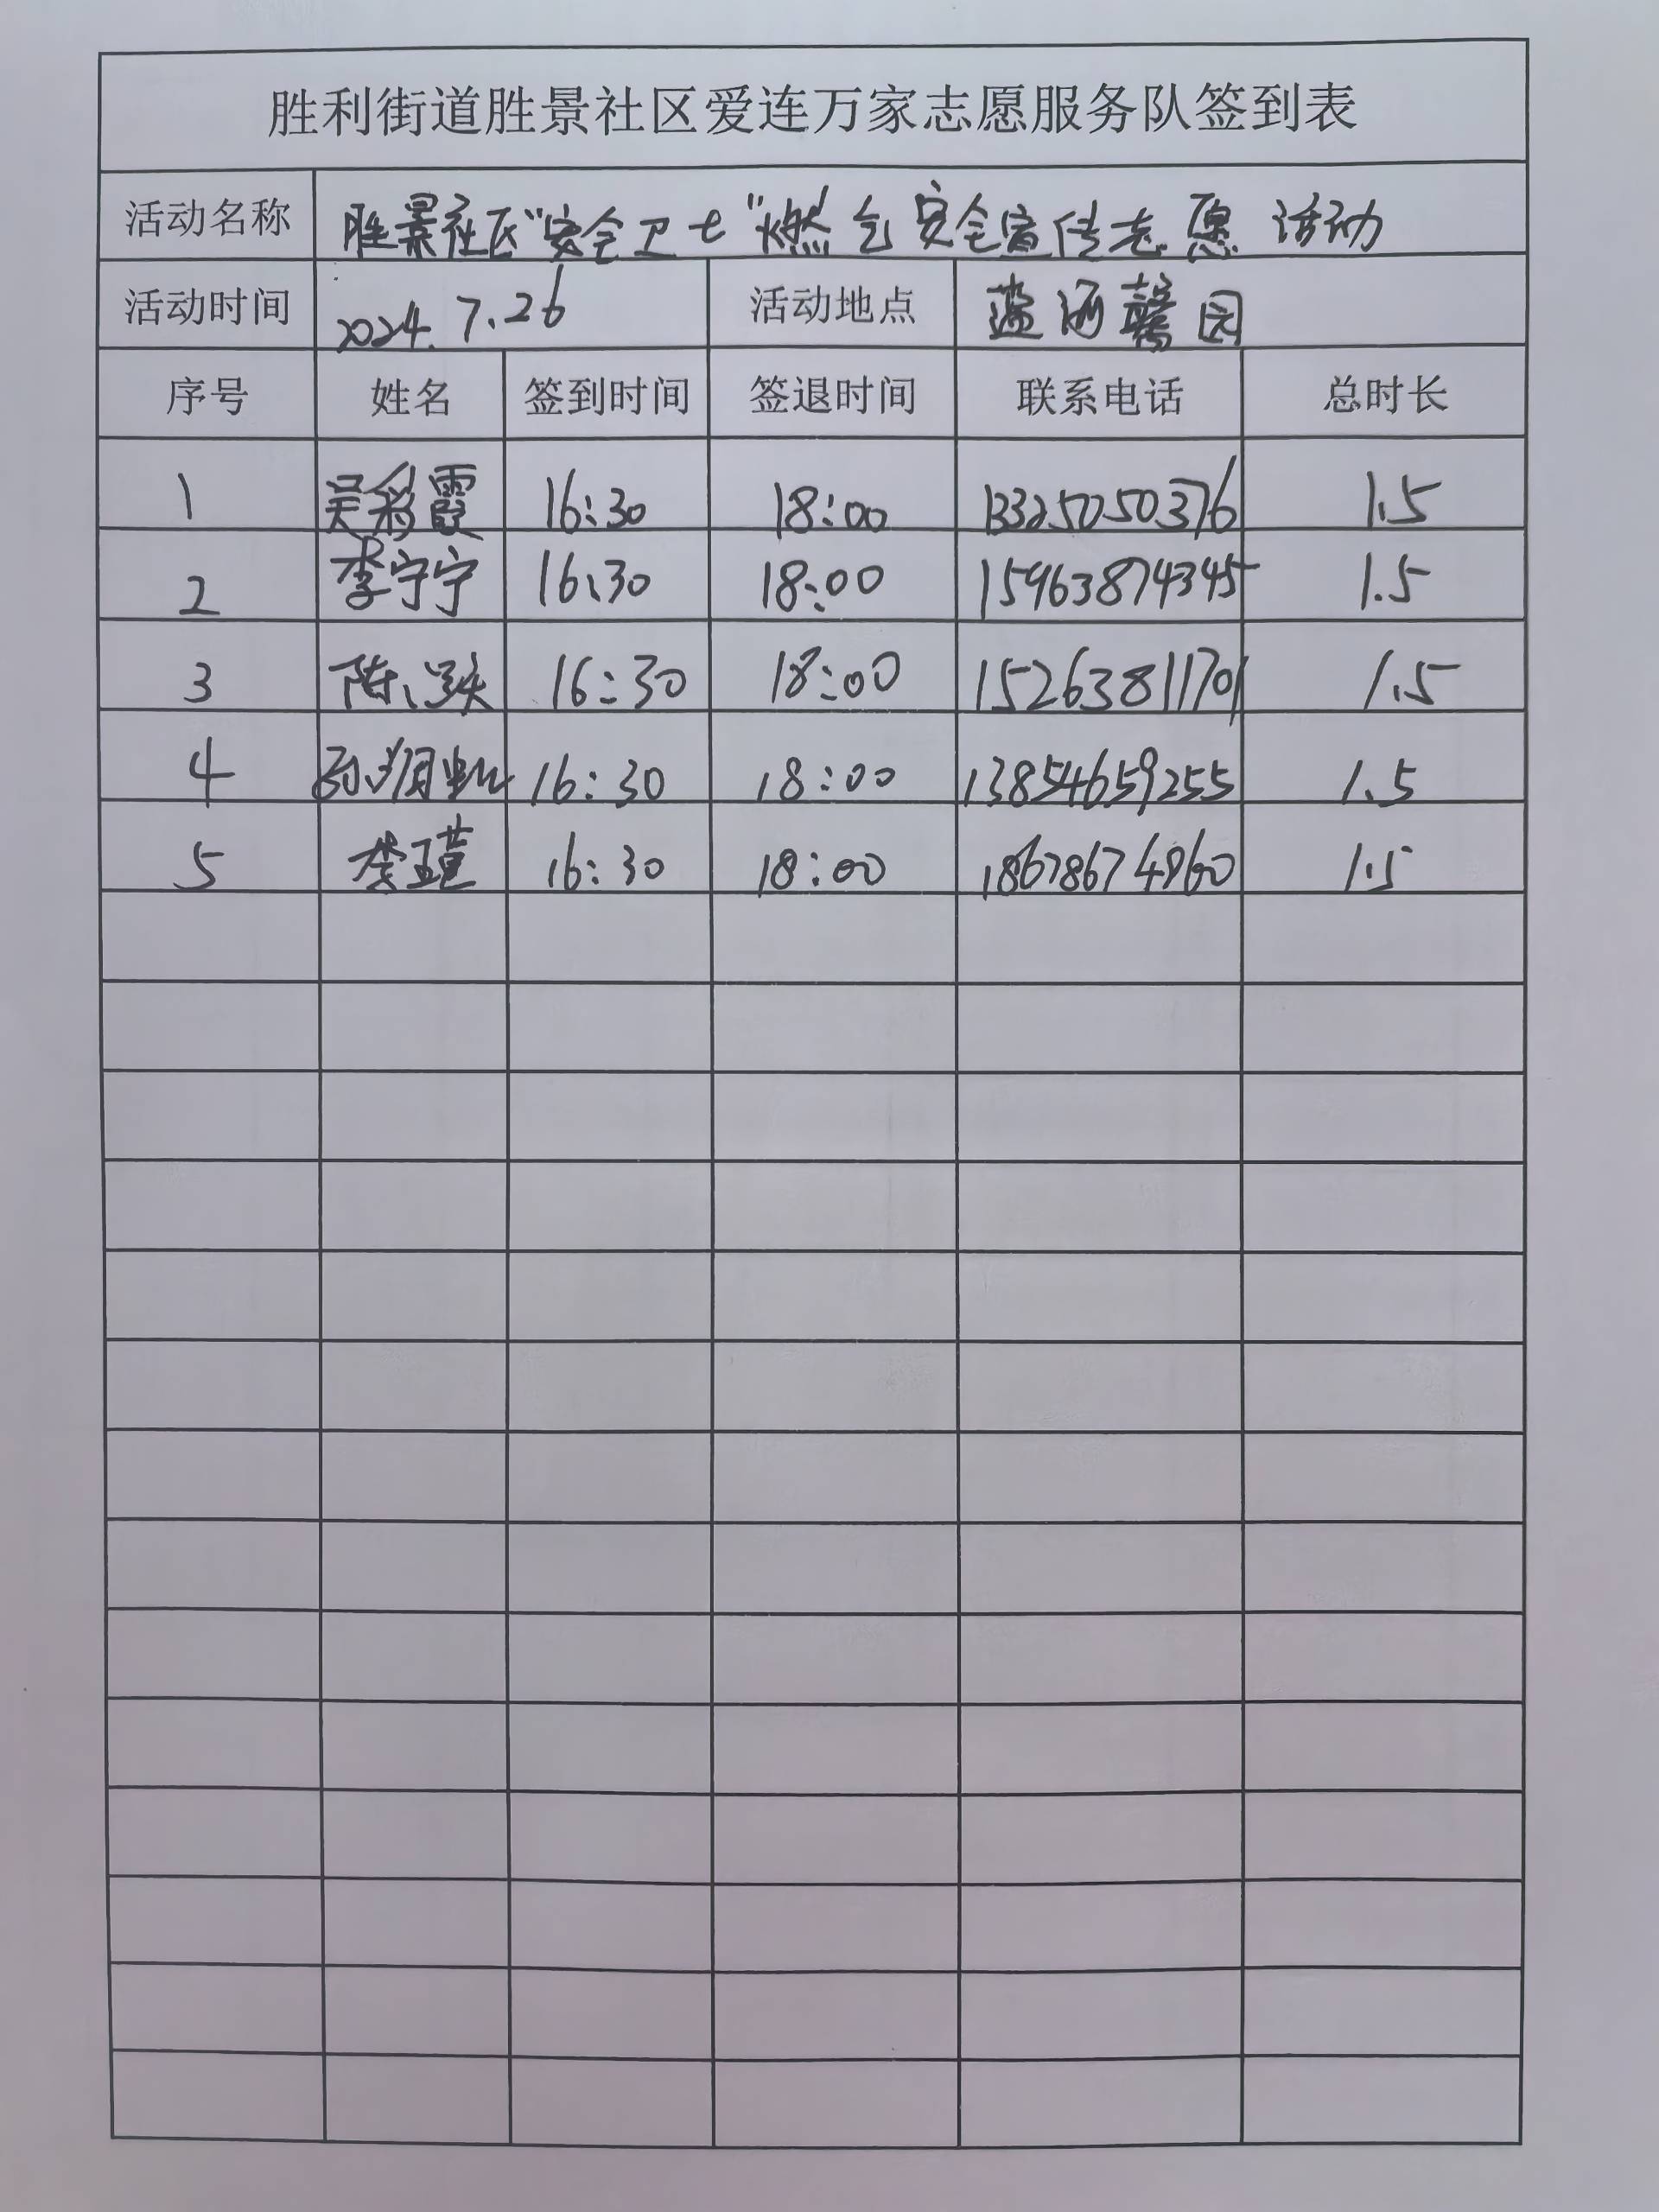 胜利街道胜景社区爱连万家志愿服务队签到表
活动名称 胜景社区“安全卫士”燃气安全宣传志愿活动
活动时间 2024.7.26 活动地点 蓝海馨园
序号 姓名 签到时间 签退时间 联系电话 总时长
1 吴彩霞 16:30 18:00 13325050376 1.5
2 李宁宁 16:30 18:00 15963874345 1.5
3 陈 16:30 18:00 15263811701 1.5
4 孙 16:30 18:00 13854659255 1.5
5 李瑾 16:30 18:00 18678674960 1.5